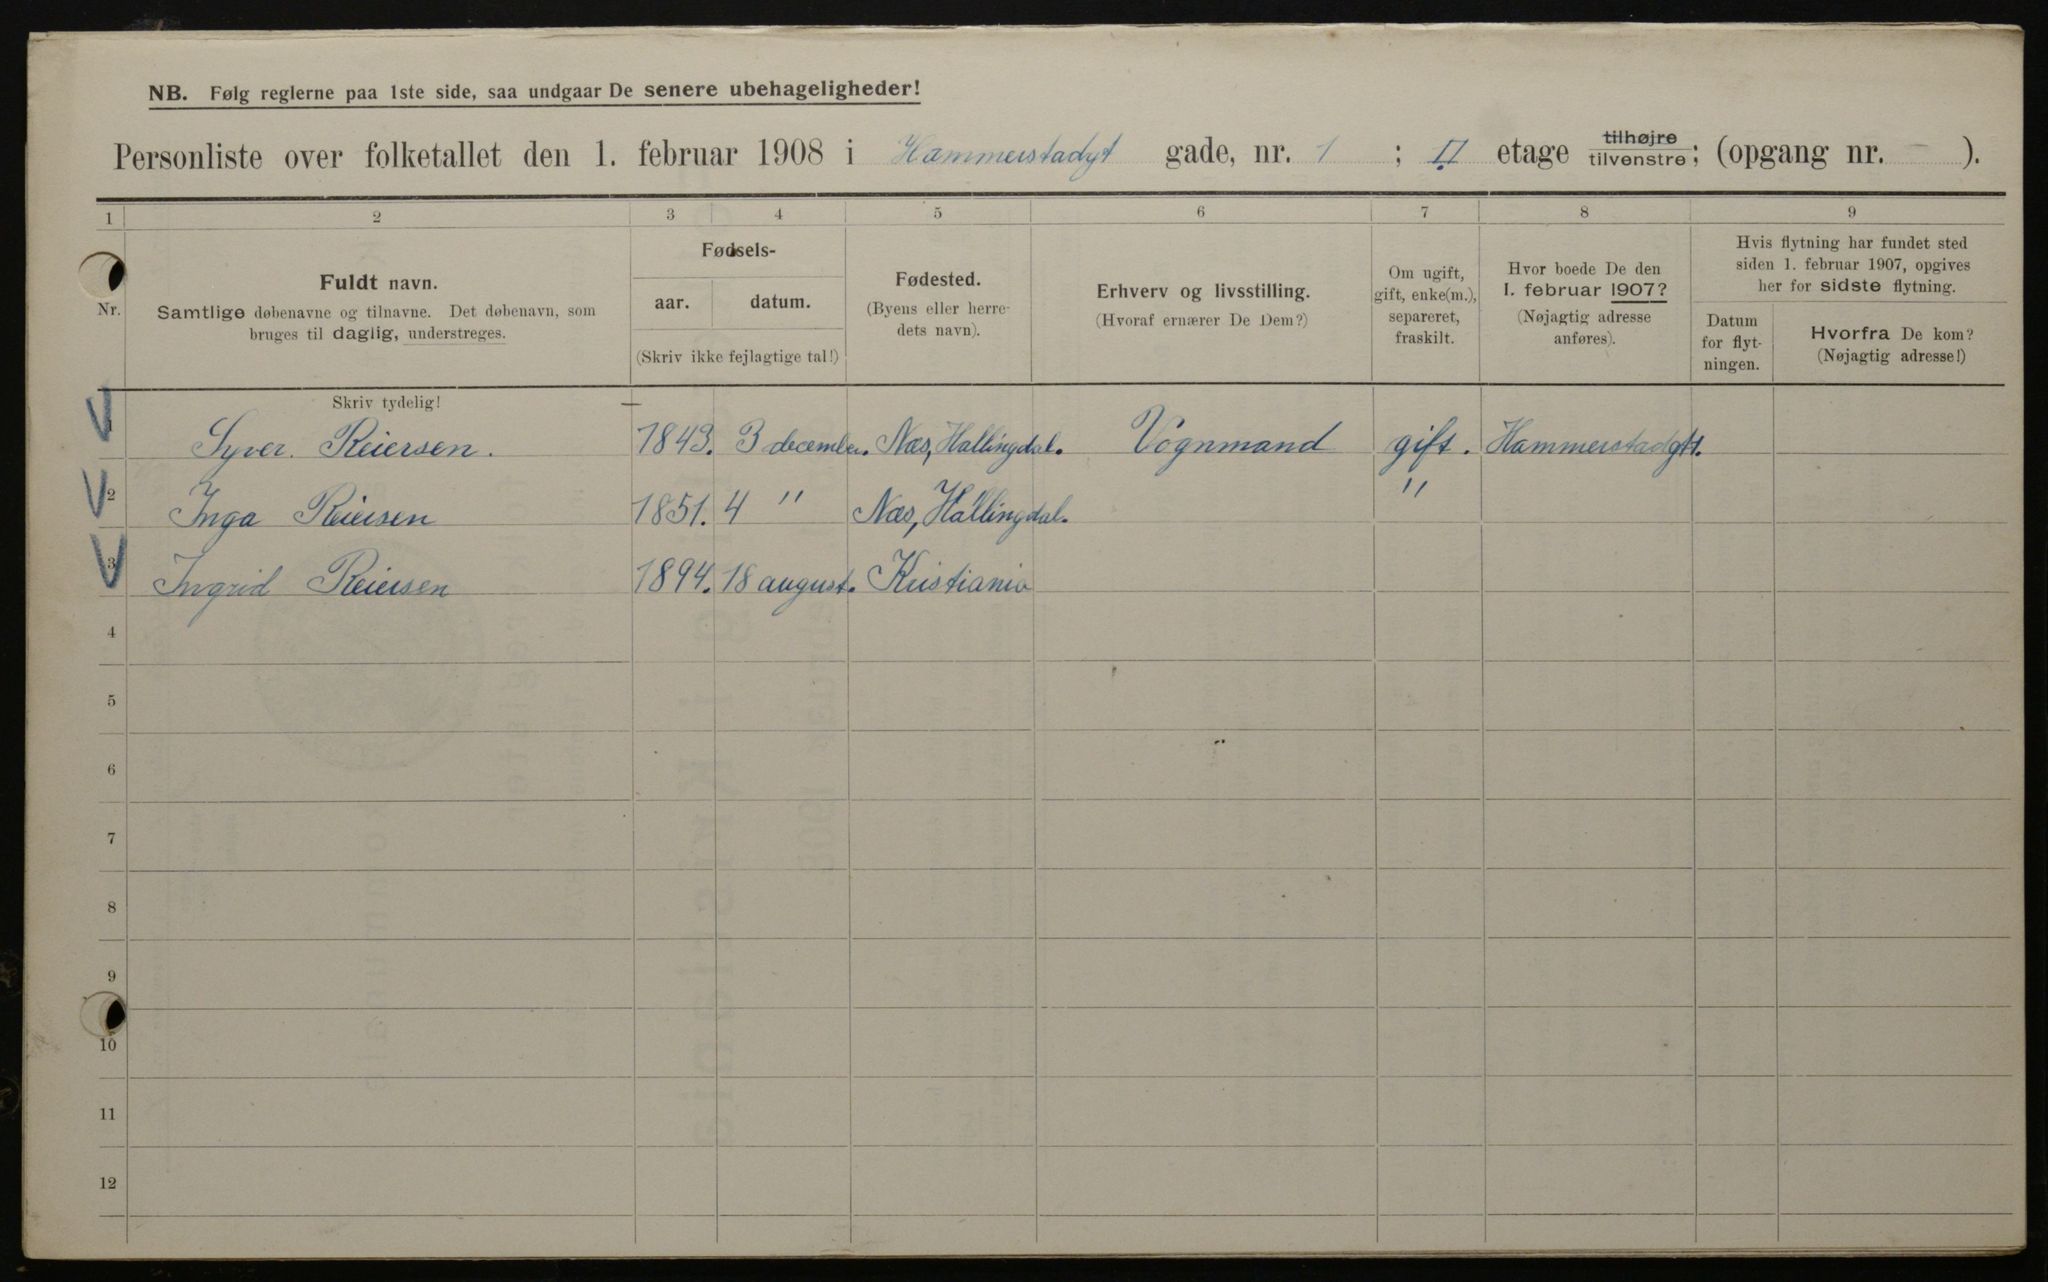 NB. Følg reglerne paa 1ste side, saa undgaar De senere ubehageligheder!
Personliste over folketallet den 1. februar 1908 i Hammerstadgt gade, nr. 1 ; II etage tilhøjre tilvenstre; (opgang nr. – ).
1 2 3 4 5 6 7 8 9
Nr.
Fuldt navn.
Samtlige døbenavne og tilnavne. Det døbenavn, som
bruges til daglig, understreges.
Fødsels-
aar. datum.
(Skriv ikke fejlagtige tal!)
Fødested.
(Byens eller herre-
dets navn).
Erhverv og livsstilling.
(Hvoraf ernærer De Dem?)
Om ugift,
gift, enke(m.),
separeret,
fraskilt.
Hvor boede De den
1. februar 1907?
(Nøjagtig adresse
anføres).
Hvis flytning har fundet sted
siden 1. februar 1907, opgives
her for sidste flytning.
Datum
for flyt-
ningen.
Hvorfra De kom?
(Nøjagtig adresse!)
Skriv tydelig!
1 Syver. Reiersen. 1843. 3 december. Næs, Hallingdal. Vognmand gift. Hammerstadgt 1.
2 Inga Reiersen 1851. 4 " Næs, Hallingdal. "
3 Ingrid Reiersen 1894. 18 august. Kristiania
4
5
6
7
8
9
10
11
12